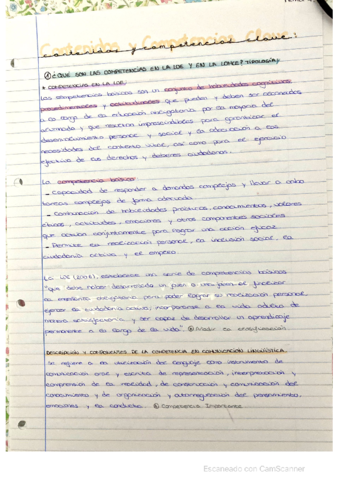 Contenidos y Competencias Clave:
① ¿QUÉ SON LAS COMPETENCIAS EN LA LOE Y EN LA LOMCE? TIPOLOGÍA
• COMPETENCIAS EN LA LOE:
Las competencias básicas son un conjunto de habilidades cognitivas,
procedimentales y actitudinales que pueden y deben ser alcanzadas
a lo largo de la educación obligatoria por la mayoría del
alumnado y que resultan imprescindibles para garantizar el
desenvolvimiento personal y social y la adecuación a las
necesidades del contexto vital, así como para el ejercicio
efectivo de los derechos y deberes ciudadanos.
La competencia básica:
- Capacidad de responder a demandas complejas y llevar a cabo
tareas complejas de forma adecuada.
- Combinación de habilidades prácticas, conocimientos, valores
éticos, actitudes, emociones y otros componentes sociales
que actúan conjuntamente para lograr una acción eficaz.
- Permite la realización personal, la inclusión social, la
ciudadanía activa y el empleo.
La LOE (2006), establece una serie de competencias básicas
"que debe haber desarrollado un joven o una joven al finalizar
la enseñanza obligatoria para poder lograr su realización personal,
ejercer la ciudadanía activa, incorporarse a la vida adulta de
manera satisfactoria y ser capaz de desarrollar un aprendizaje
permanente a lo largo de la vida".
DESCRIPCIÓN Y COMPONENTES DE LA COMPETENCIA EN COMUNICACIÓN LINGÜÍSTICA
Se refiere a la utilización del lenguaje como instrumento de
comunicación oral y escrita, de representación, interpretación y
comprensión de la realidad, de construcción y comunicación del
conocimiento y de organización y autorregulación del pensamiento,
emociones y la conducta.
Escaneado con CamScanner